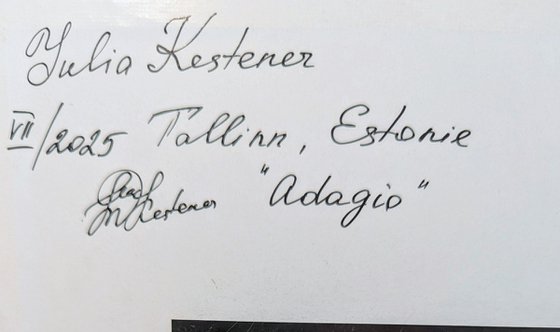 Julia Kestener
VII/2025 Tallinn, Estonie
Kestener "Adagio"